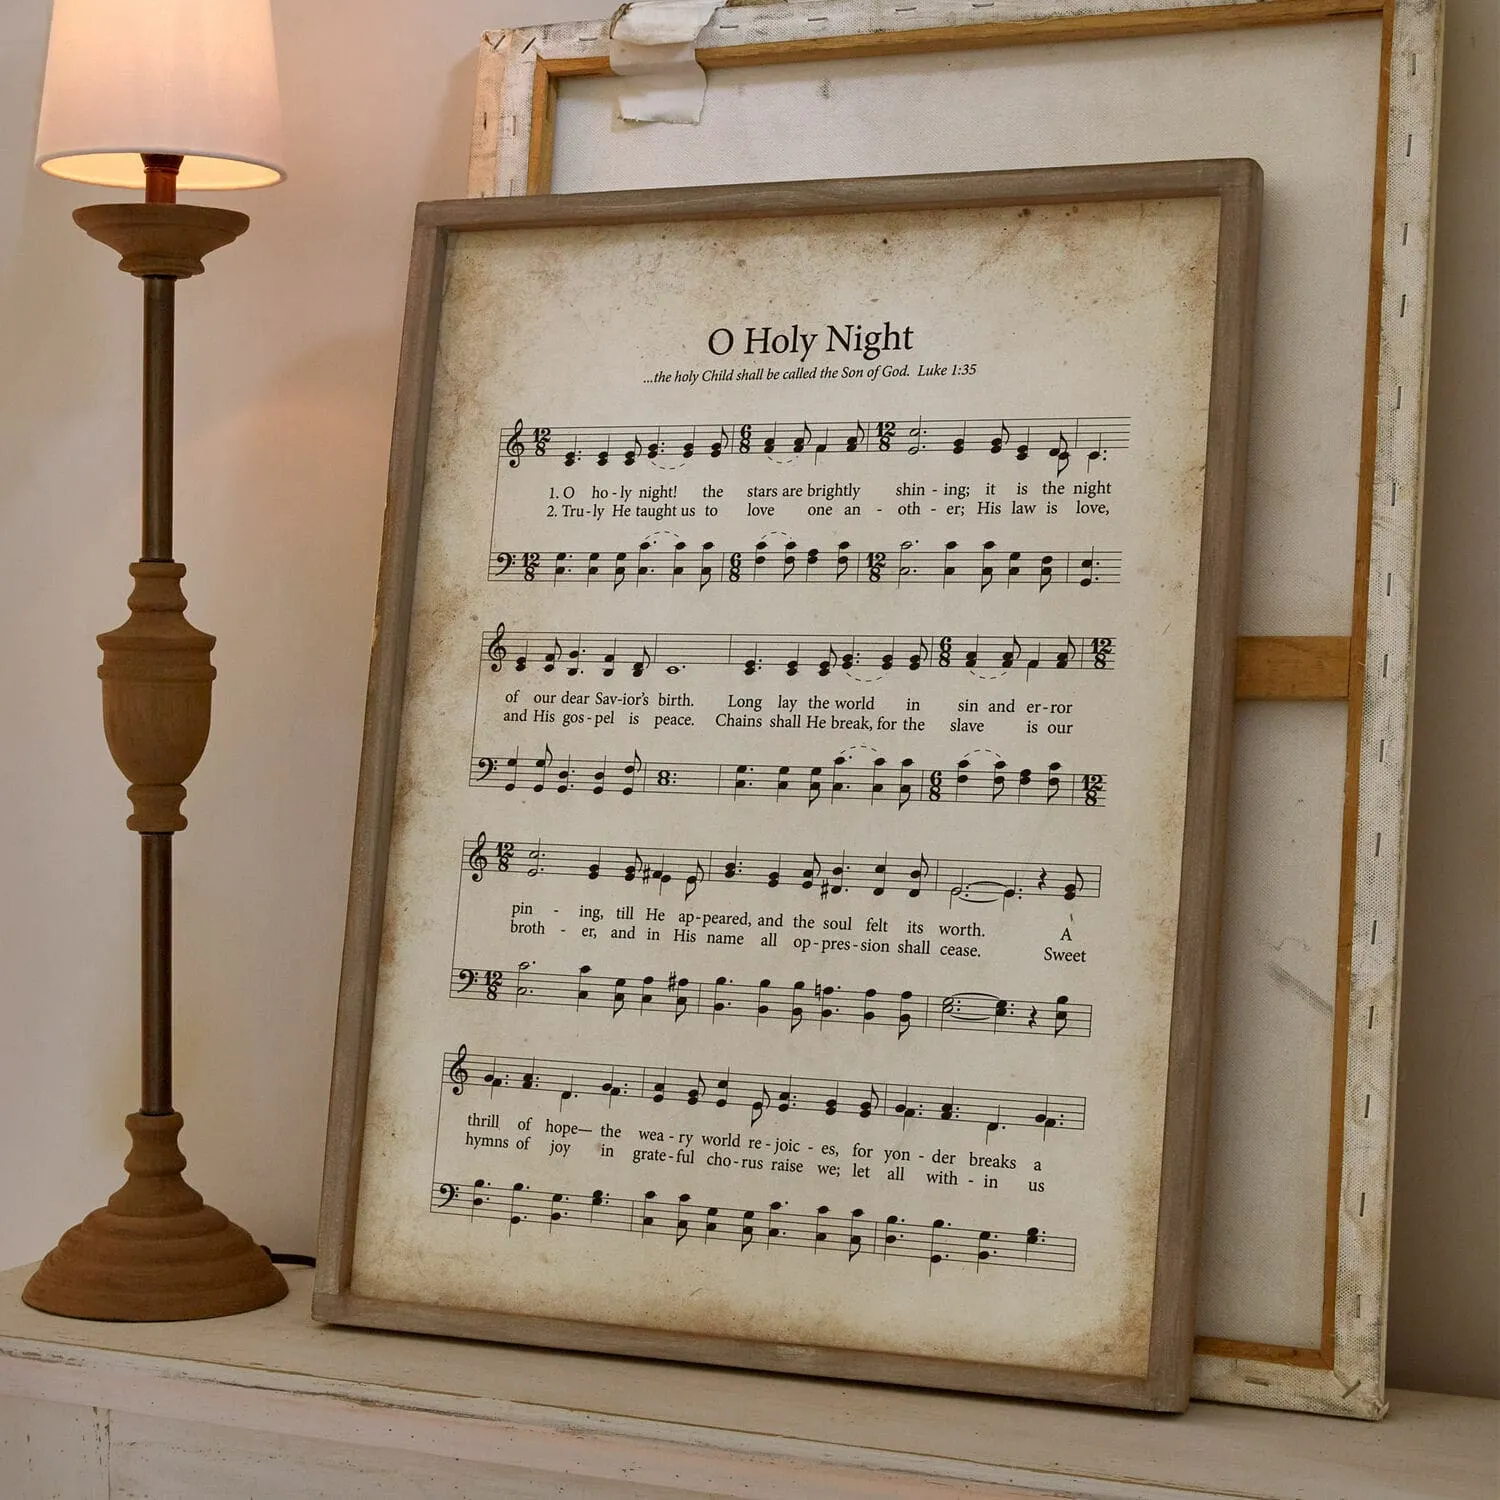 O Holy Night
...the holy Child shall be called the Son of God. Luke 1:35
12 8 6 8 12 8
1. O ho - ly night! the stars are brightly shin - ing; it is the night
2. Tru - ly He taught us to love one an - oth - er; His law is love,
12 8 6 8 12 8
6 8 12 8
of our dear Sav-ior's birth. Long lay the world in sin and er-ror
and His gos - pel is peace. Chains shall He break, for the slave is our
6 8 12 8
12 8
pin - ing, till He ap-peared, and the soul felt its worth. A
broth - er, and in His name all op-pres-sion shall cease. Sweet
12 8
thrill of hope— the wea - ry world re - joic - es, for yon - der breaks a
hymns of joy in grate-ful cho-rus raise we; let all with - in us